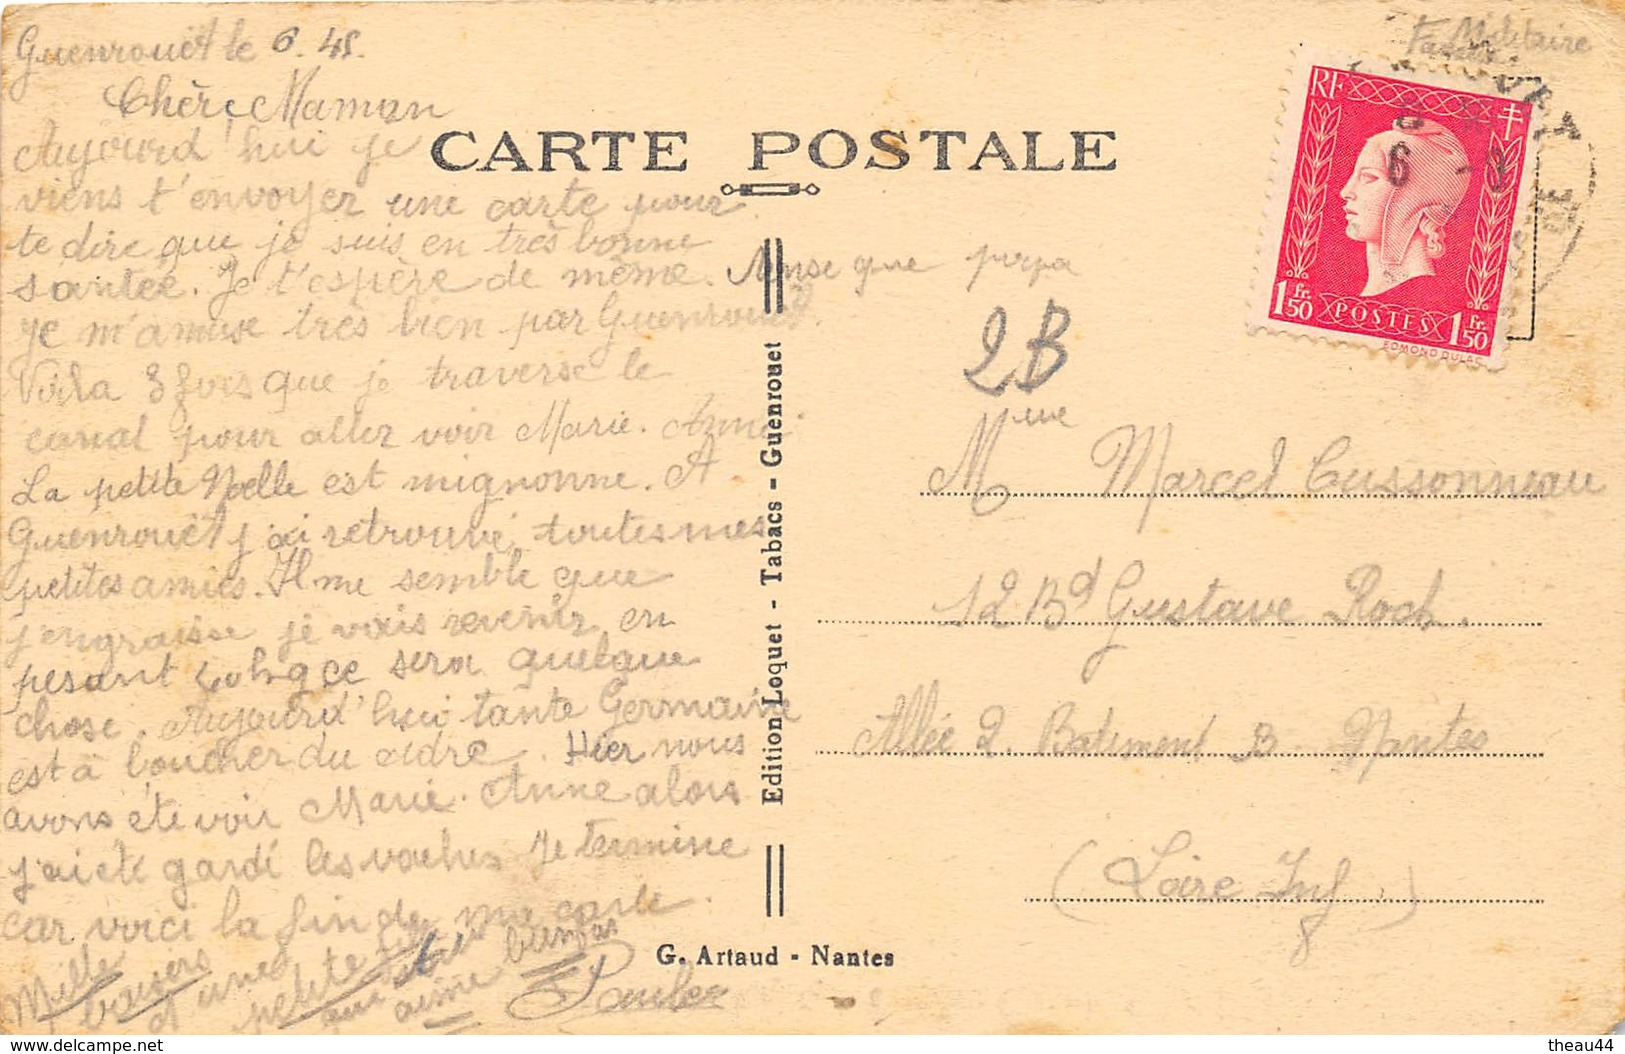 Guenrouët le 6.45.
Chère Maman
Aujourd'hui je
viens t'envoyer une carte pour
te dire que je suis en très bonne
santée. Je t'espère de même. Ainse que papa
Je m'amuse très bien par Guenrouet.
Voila 3 fois que je traverse le
canal pour aller voir Marie. Anne.
La petite Noelle est mignonne. A
Guenrouët j'ai retrouvé toutes mes
petites amies. Il me semble que
j'engraisse je vais revenir en
pesant ce sera quelque
chose. Aujourd'hui tante Germaine
est à boucher du cidre. Hier nous
avons éte voir Marie. Anne alors
j'ai eté gardé les vaches Je termine
car voici la fin de ma carte.
Mille baisers d'une petite fille
qui aime bien
CARTE POSTALE
Edition Loquet - Tabacs - Guenrouet
G. Artaud - Nantes
Militaire
RF
1 fr. 50
POSTES
1 fr. 50
EDMOND DULAC
6
2B
Mme Marcel Cussonneau
12 Bd Gustave Roch.
Allée 2. Batiment B. Nantes
(Loire Inf)
https://www.delcampe.net
theau44